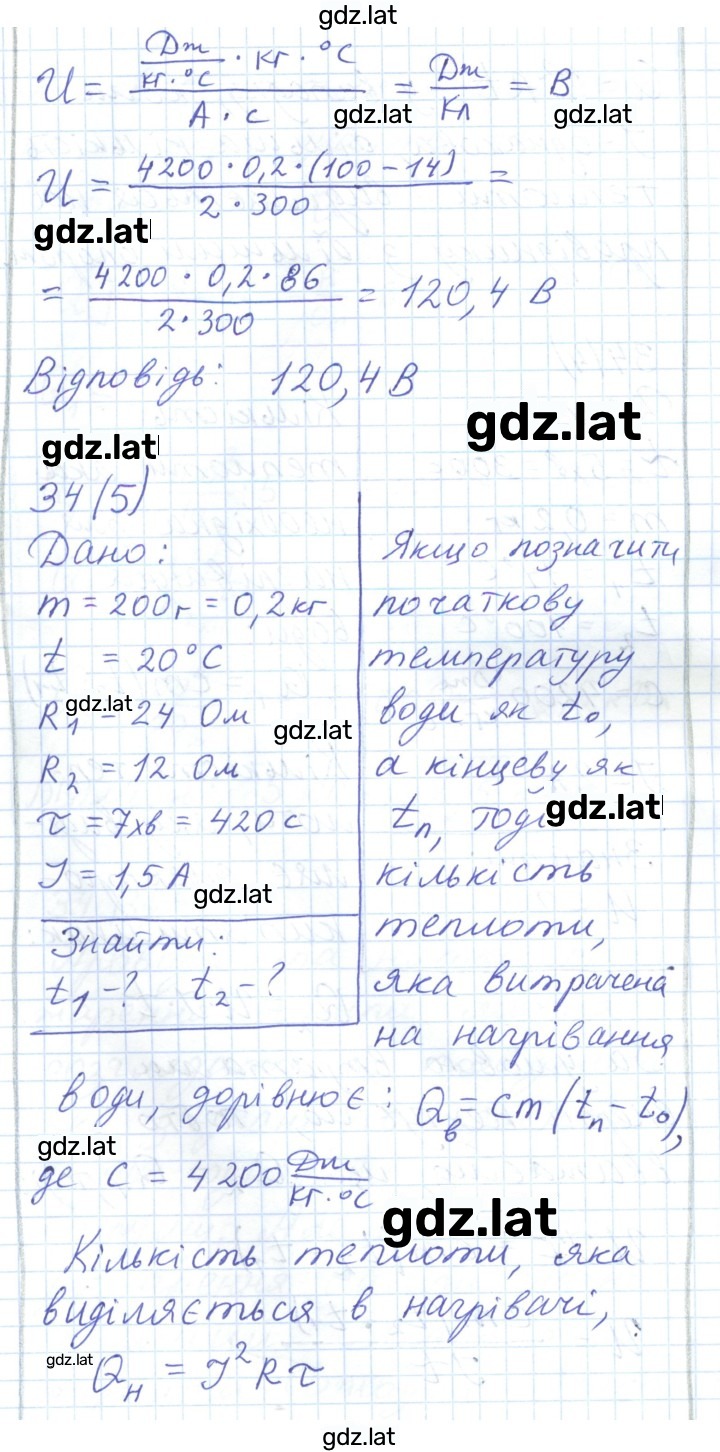 gdz.lat
U = (Дж/(кг·°С) · кг · °С)/(А · с) = Дж/Кл = В
gdz.lat gdz.lat
U = (4200 · 0,2 · (100 – 14))/(2 · 300) =
gdz.lat
= (4200 · 0,2 · 86)/(2 · 300) = 120,4 В
Відповідь: 120,4 В
gdz.lat
gdz.lat
34(5)
Дано:
m = 200г = 0,2кг
t = 20°С
gdz.lat
R₁ = 24 Ом
gdz.lat
R₂ = 12 Ом
τ = 7хв = 420с
I = 1,5 А
gdz.lat
Знайти:
t₁ – ? t₂ – ?
Якщо позначити
початкову
температуру
води як t₀,
а кінцеву як
tₙ, тоді
gdz.lat
кількість
теплоти,
яка витрачена
на нагрівання
води, дорівнює: Qв = cm(tₙ – t₀),
gdz.lat
де c = 4200 Дж/(кг·°С)
gdz.lat
Кількість теплоти, яка
виділяється в нагрівачі,:
gdz.lat
Qн = I²Rτ
gdz.lat